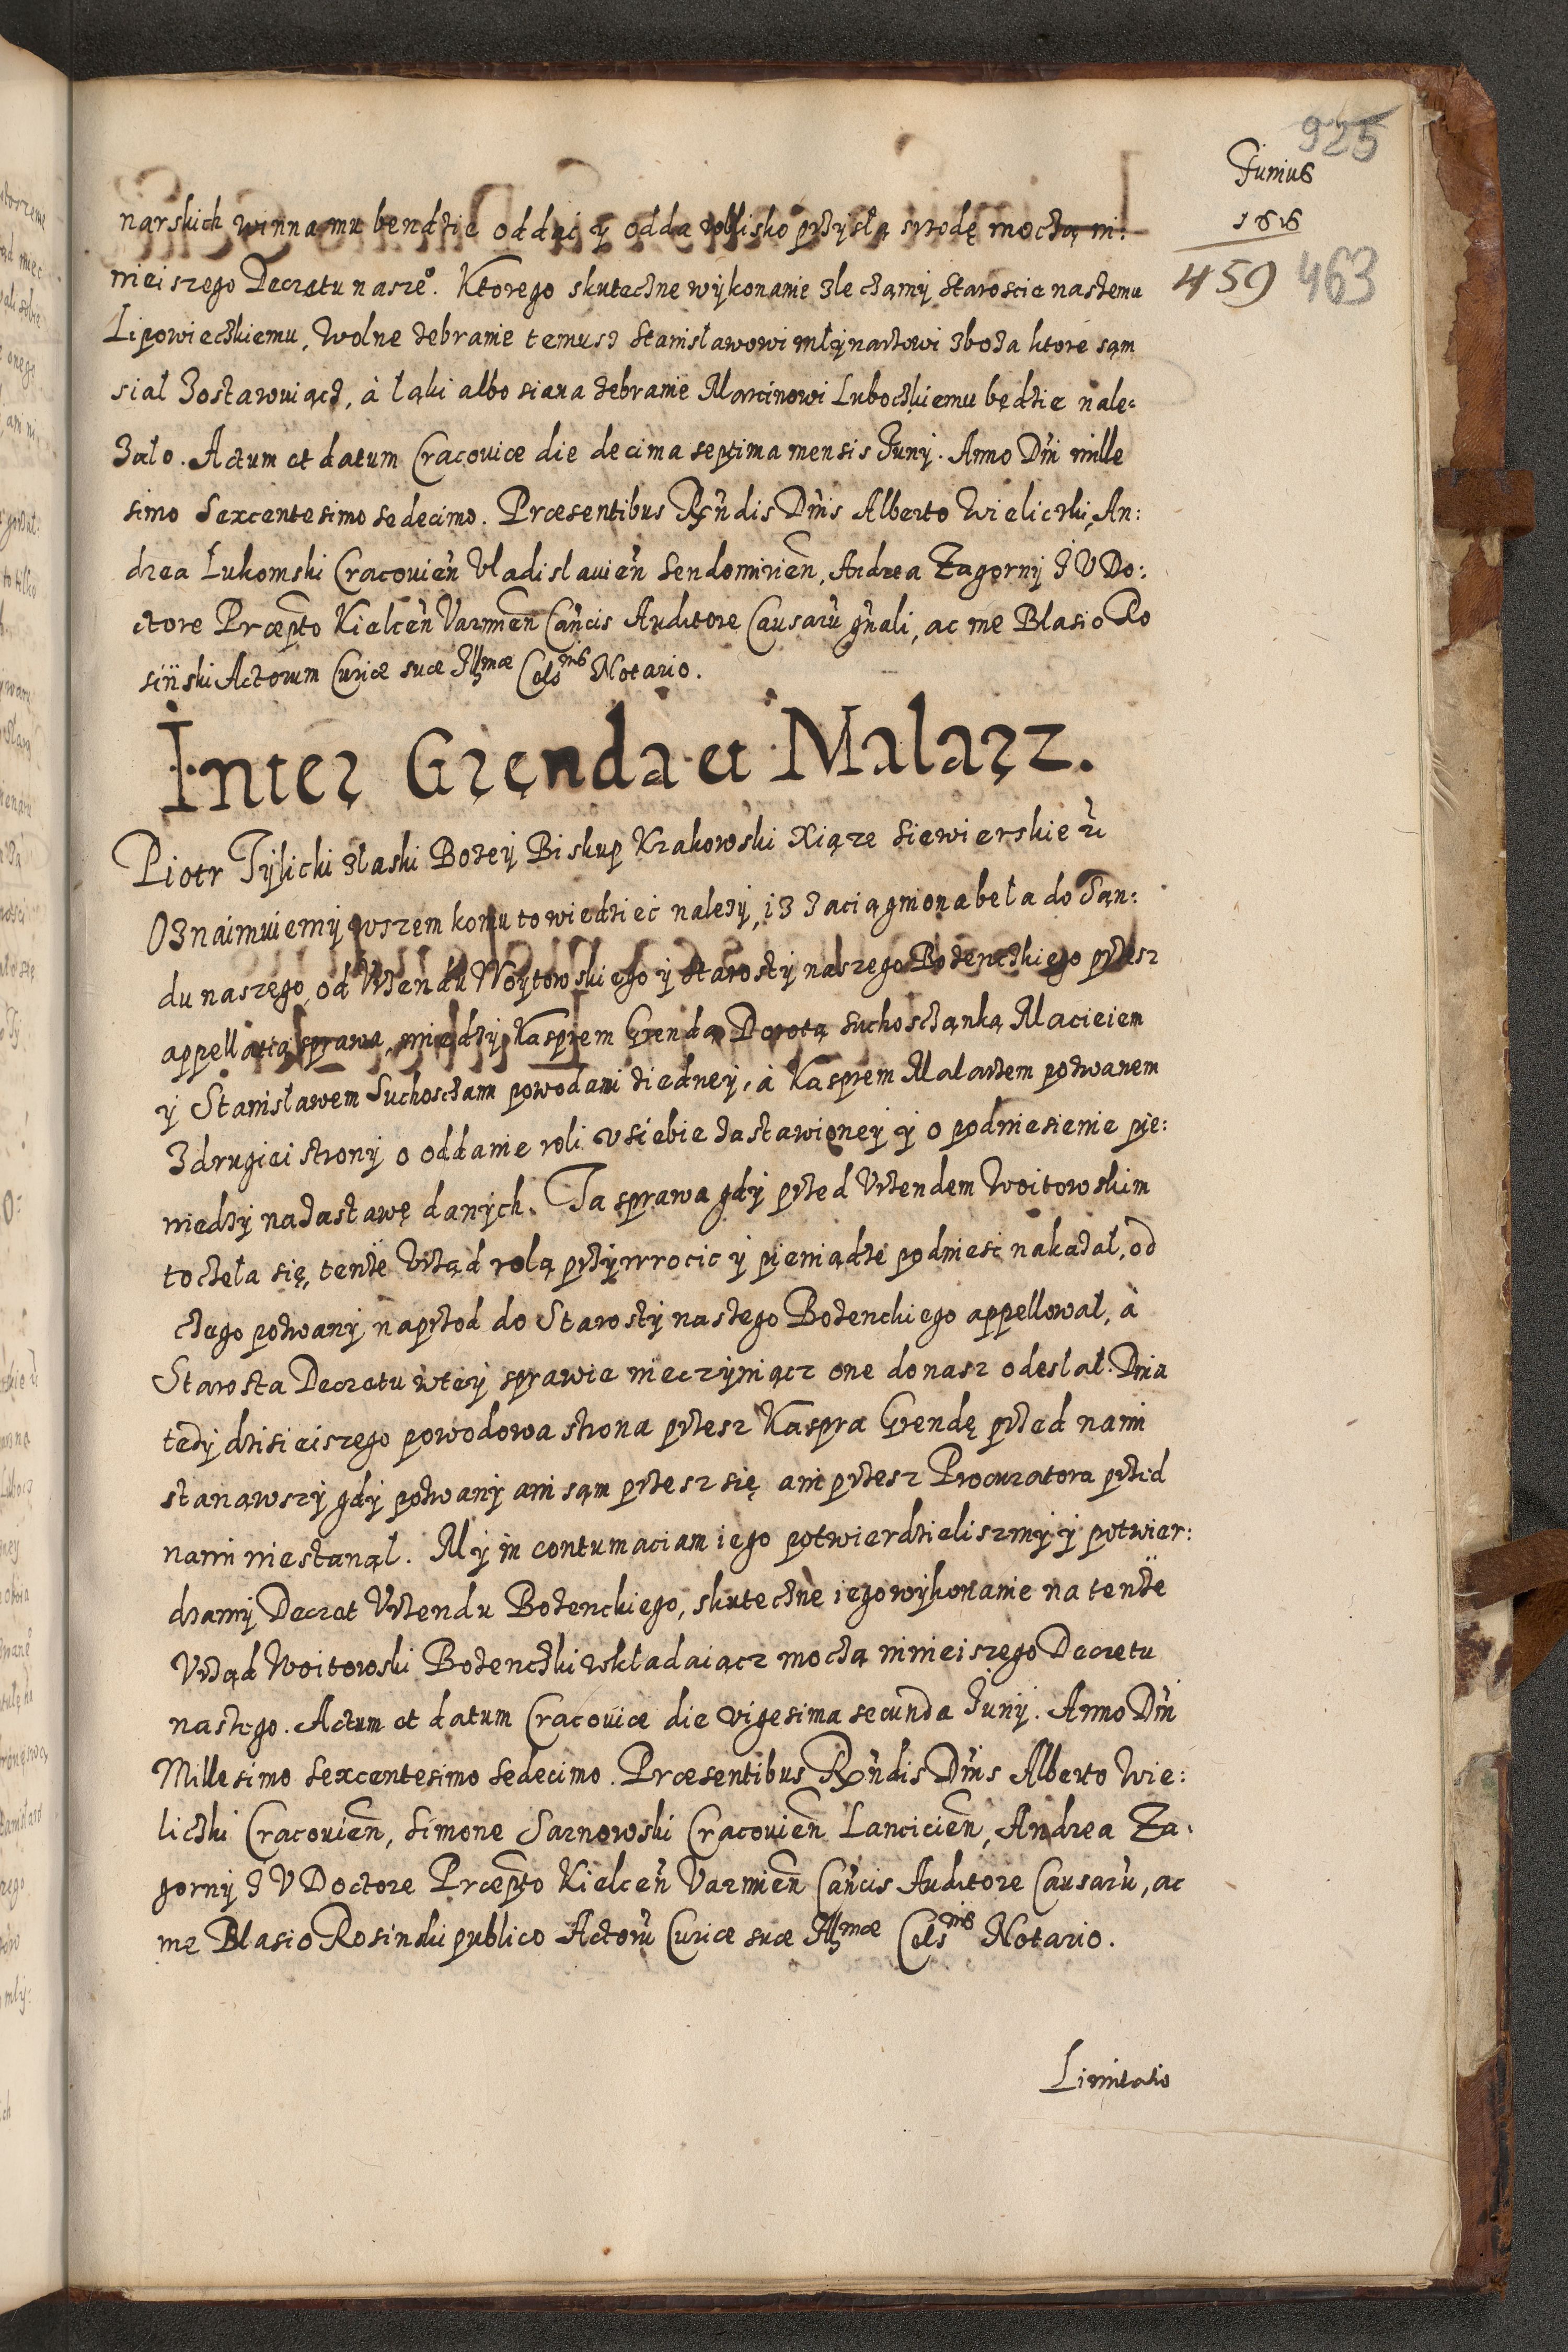 925
Junius
1616
459 463
narskich winna mu bendzie oddać y odda w blisko przysłą srzodę moczą ni:
nieiszego Decretu nasze°. Ktorego skuteczne wykonanie zleczamy Staroscie naszemu
Lipowieczkiemu, wolne zebranie temusz Stanisławowi młynarzowi zboza ktore sąm
sial zostawuiącz, à łąki albo siana zebranie Marcinowi Luboczkiemu będzie nale:
zało. Actum et datum Cracoviæ die decima septima mensis Junÿ. Anno Dñi mille
simo Sexcentesimo sedecimo. Præsentibus Rñdis Dñis Alberto Wieliczki, An:
drea Lukomski Cracovień Vladislavień Sendomirień, Andrea Zagorny J V Do:
ctore Præpto Kielceń Varmień Cañcis Auditore Causarũ gñali, ac me Blasio Ro
siński Actorum Curiæ suæ Illmæ Cels nis Notario.
Inter Gręnda et Malarz.
Piotr Tylicki z łaski Bozey Biskup Krakowski Xiąze Siewierskie etc
Oznaimuiemy wszem komu to wiedzieć nalezy, iz zaciągniona beła do Sąn:
du naszego, od Vrzendu Woytowskiego y Starosty naszego Bozenczkiego przesz
appellatią sprawa, miedzy Kasprem Grenda Dorotą Suchosczanką Macieiem
y Stanisławem Suchosczami powodami ziedney, à Kasprem Malarzem pozwanem
z drugiei strony o oddanie roli v siebie zastawioney y o podniesienie pie:
niedzy na zastawę danych. Ta sprawa gdy przed Vrzendem Woitowskim
toczeła się, tenze Vrząd rolą przywrocic y pieniądze podniesc nakazał, od
czego pozwany naprzod do Starosty naszego Bozenckiego appellował, à
Starosta Decretu w tey sprawie nieczyniącz one do nasz odesłał. Dnia
tedy dzisieiszego powodowa strona przesz Kaspra Grendę przed nami
stanąwszy gdy pozwany ani sąm przesz się ani przesz Procuratora przed
nami niestanął. My in contumaciam iego potwierdzieliszmy y potwier:
dzamy Decret Vrzendu Bozenckiego, skuteczne iego wykonanie na tenze
Vrząd Woitowski Bozenczki wskładaiącz moczą ninieiszego Decretu
naszego. Actum et datum Cracoviæ die vigesima secunda Junÿ. Anno Dñi
Millesimo Sexcentesimo Sedecimo. Præsentibus Rñdis Dñis Alberto Wie:
liczki Cracovień, Simone Sarnowski Cracovień Lancicień, Andrea Za:
gorny J V Doctore Præpto Kielceń Varmień Cañcis Auditore Causarũ, ac
me Blasio Rosinski publico Actorũ Curiæ suæ Illmæ Cels nis Notario.
Limitatio